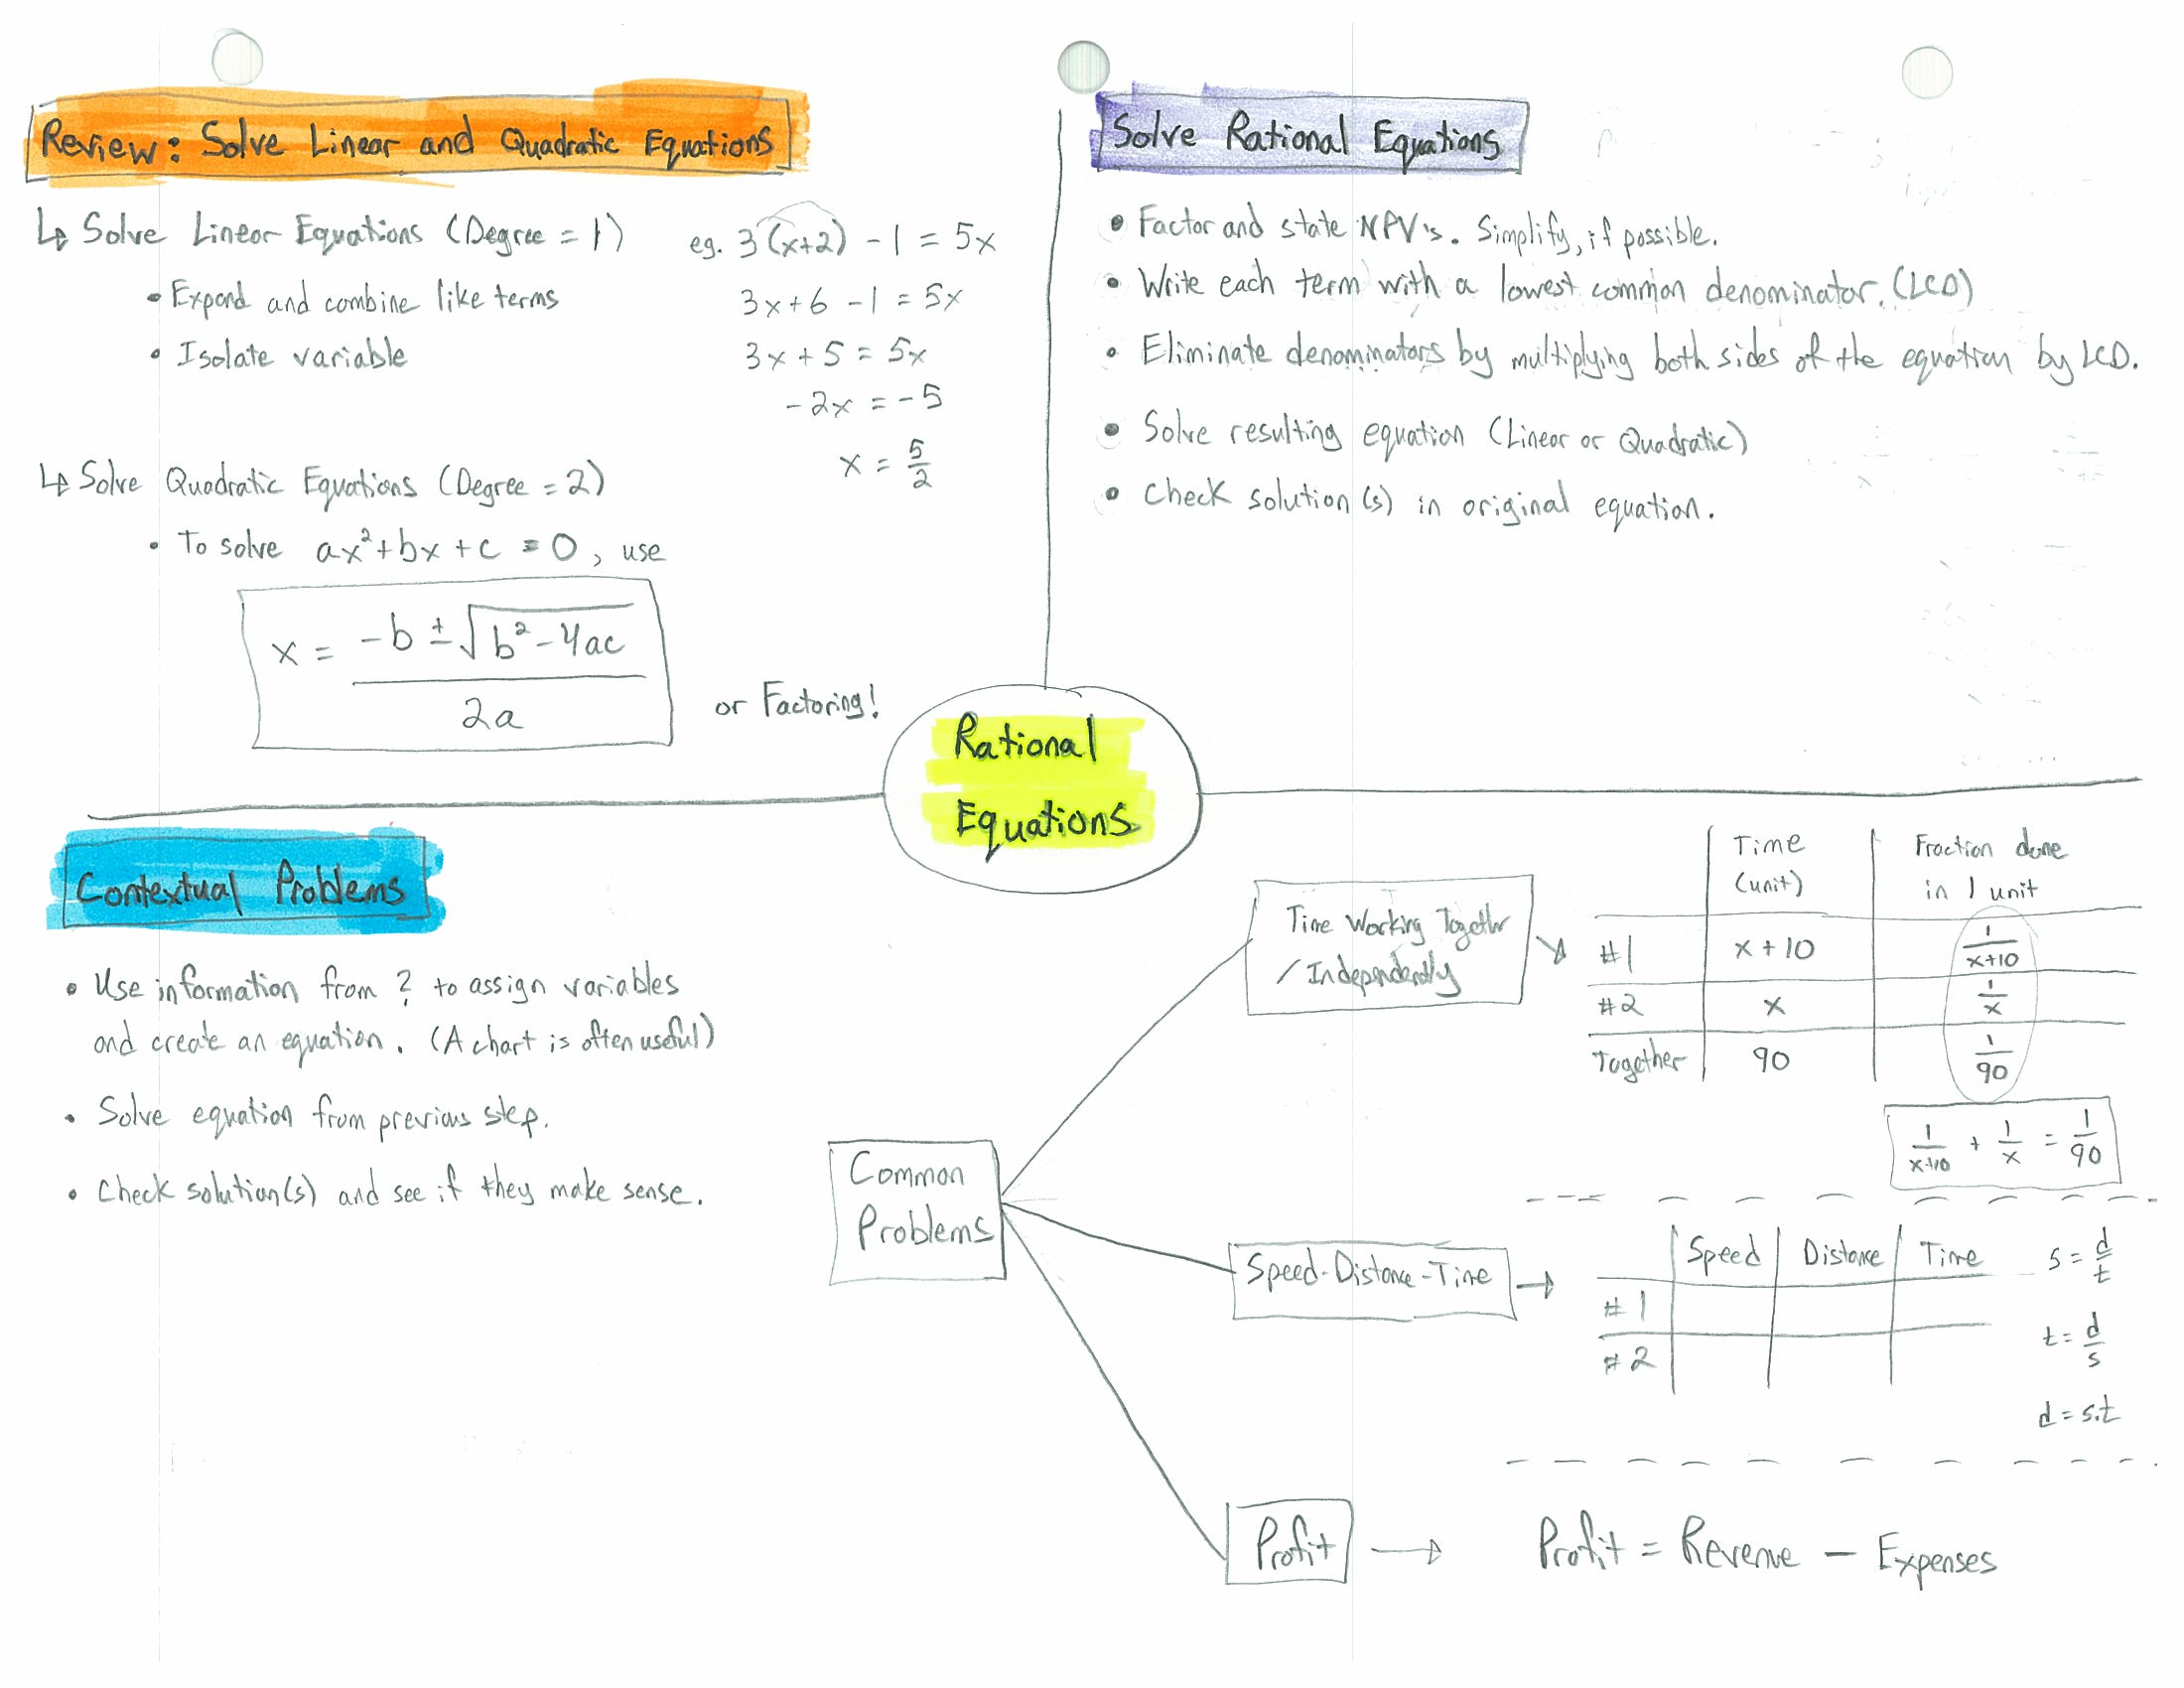 Review: Solve Linear and Quadratic Equations
↳ Solve Linear Equations (Degree = 1)
• Expand and combine like terms
• Isolate variable
eg. 3(x+2) - 1 = 5x
3x+6 - 1 = 5x
3x + 5 = 5x
-2x = -5
x = 5/2
↳ Solve Quadratic Equations (Degree = 2)
• To solve ax²+bx+c = 0, use
x = (-b ± √(b²-4ac)) / 2a
or Factoring!
Solve Rational Equations
• Factor and state NPV's. Simplify, if possible.
• Write each term with a lowest common denominator. (LCD)
• Eliminate denominators by multiplying both sides of the equation by LCD.
• Solve resulting equation (Linear or Quadratic)
• Check solution(s) in original equation.
Rational
Equations
Contextual Problems
• Use information from ? to assign variables
and create an equation. (A chart is often useful)
• Solve equation from previous step.
• Check solution(s) and see if they make sense.
Common
Problems
Time Working Together
/ Independently
Time Fraction done
(unit) in 1 unit
#1 x+10 1/(x+10)
#2 x 1/x
Together 90 1/90
1/(x+10) + 1/x = 1/90
Speed-Distance-Time
Speed Distance Time
#1
#2
s = d/t
t = d/s
d = s.t
Profit
Profit = Revenue - Expenses